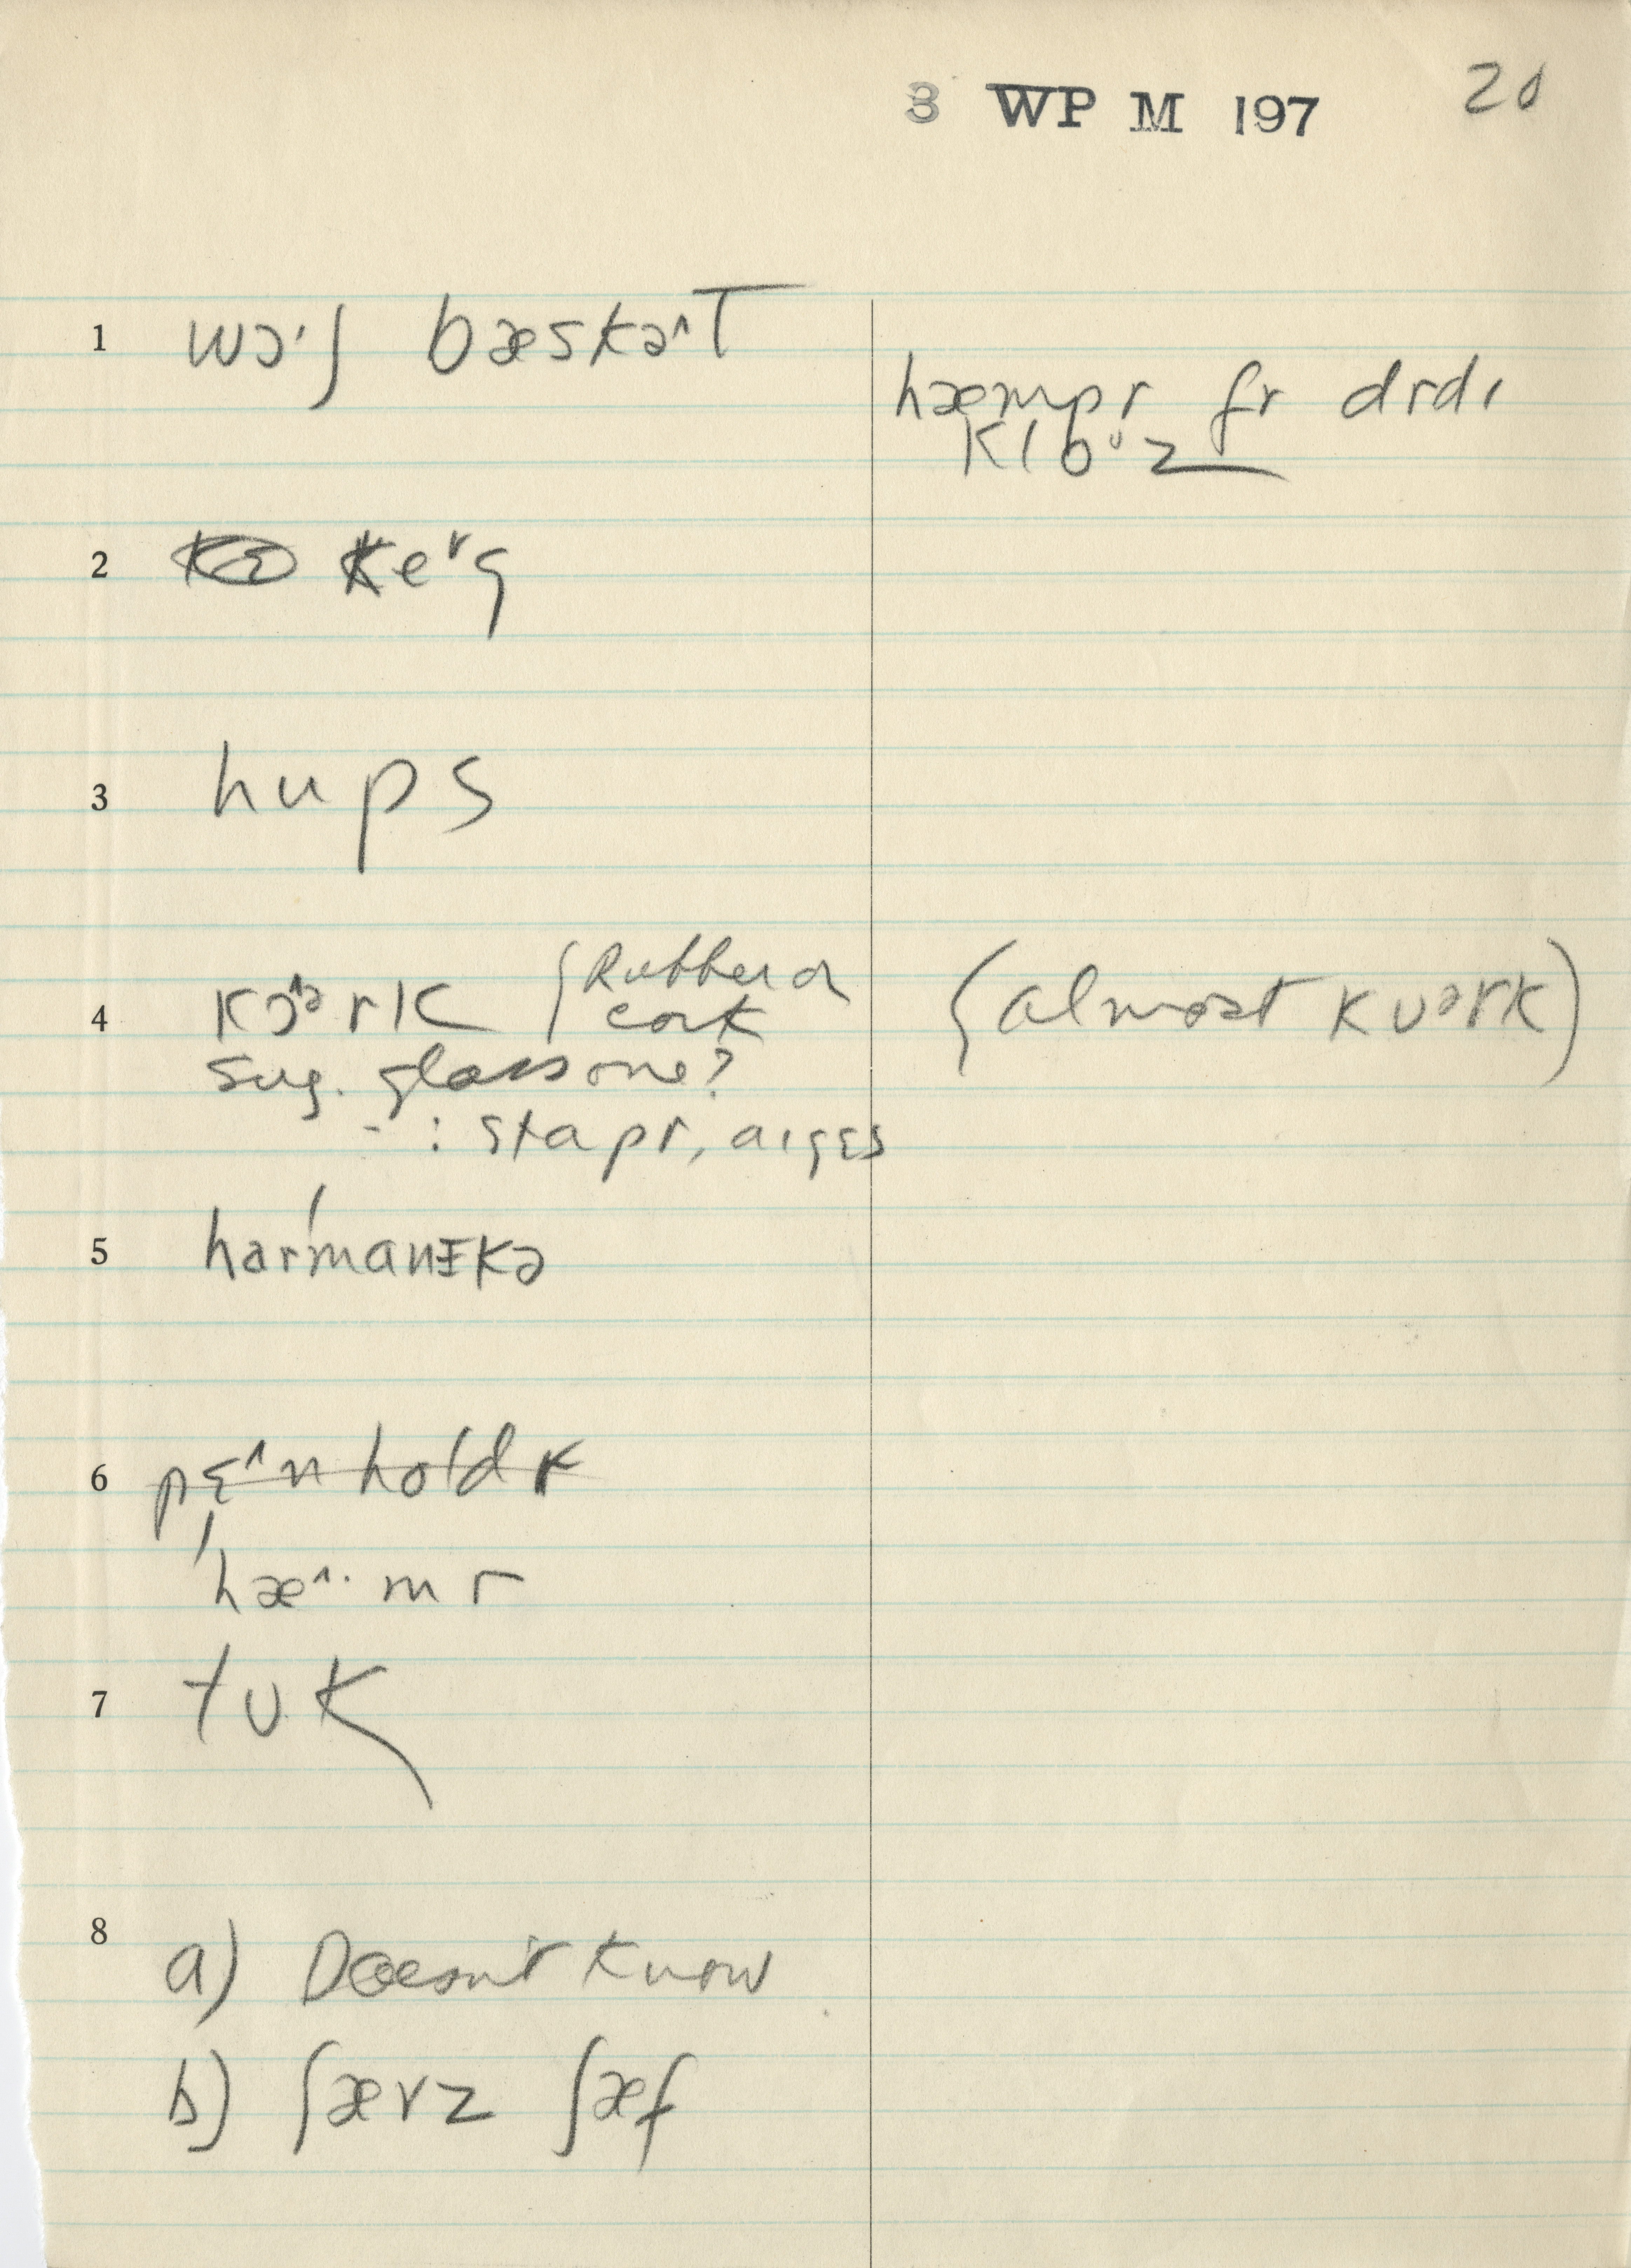 3 WP M 197 20
1 wɔ·ʃ bæskə˄T
hæmpr fr dɪdɪ
klo·ᶷz
2 ke˅g
3 hups
4 kɔ˄ᵊrk (Rubber or
cork (almost kʊərk)
sug. glass one?
- : stapr, aɪgɛs
5 har'manɪkə
6 pɛ˄n holdr
'hæ˄·mr
7 tʊk
8 a) Doesn't know
b) ʃævz ʃæf